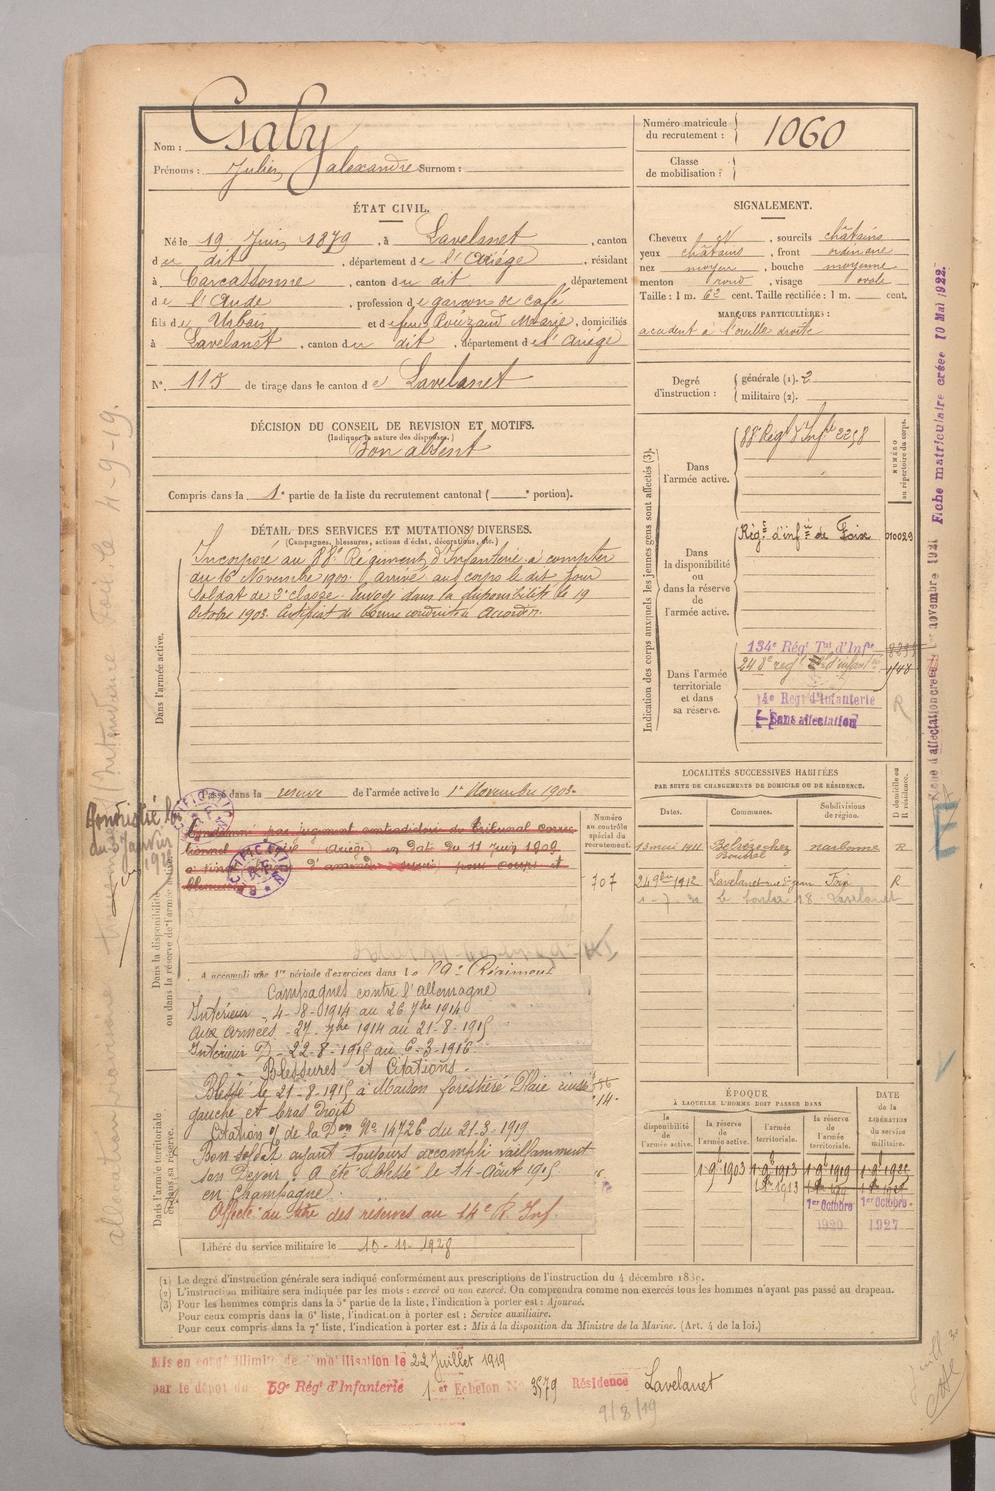 Nom : Gaby
Prénoms : Julien, alexandre Surnom :
Numéro matricule du recrutement : 1060
Classe de mobilisation :
ÉTAT CIVIL.
Né le 19 Juin 1879, à Lavelanet, canton
du dit, département de l'Ariège, résidant
à Carcassonne, canton du dit, département
de l'Aude, profession de garçon de café
fils de Urbain et de feue Pouzaud Marie, domiciliés
à Lavelanet, canton du dit, département de l'Ariège
N°. 115 de tirage dans le canton de Lavelanet
SIGNALEMENT.
Cheveux N, sourcils châtains
yeux châtains, front ordinaire
nez moyen, bouche moyenne
menton rond, visage ovale
Taille : 1 m. 62 cent. Taille rectifiée : 1 m. cent.
MARQUES PARTICULIÈRES :
accident à l'oreille droite
Degré d'instruction : générale (1). 2
militaire (2).
DÉCISION DU CONSEIL DE REVISION ET MOTIFS.
(Indiquer la nature des dispenses.)
Bon absent
Compris dans la 1e partie de la liste du recrutement cantonal ( e portion).
DÉTAIL DES SERVICES ET MUTATIONS DIVERSES.
(Campagnes, blessures, actions d'éclat, décorations, etc.)
Dans l'armée active.
Incorporé au 88e Régiment d'Infanterie à compter
du 16 Novembre 1900. arrivé au corps le dit jour
soldat de 2e classe. Envoyé dans la disponibilité le 19
Octobre 1903. Certificat de bonne conduite Accordé.
Passé dans la réserve de l'armée active le 1er Novembre 1903.
Indication des corps auxquels les jeunes gens sont affectés (3).
NUMÉRO au répertoire du corps.
Dans l'armée active.
88 Régt d'Infie 2258
Dans la disponibilité ou dans la réserve de l'armée active.
Régt d'infie de Foix 010029
Dans l'armée territoriale et dans sa réserve.
134e Régt Tal d'Infie
248e regt d'infanterie
14e Regt d'Infanterie
Sans affectation
R
Fiche matriculaire créée 10 Mai 1922.
Amnistié
Dans la disponibilité ou dans la réserve de l'armée active.
Condamné par jugement contradictoire du Tribunal correc-
tionnel de Foix Ariège en date du 11 Juin 1909
d'amende pour coups et
blessures
Numéro au contrôle spécial du recrutement.
707
A accompli une 1re période d'exercices dans le 59e Régiment
Campagnes contre l'allemagne
Intérieur 4-8-1914 au 26 7bre 1914
Aux armées - 27 7bre 1914 au 21-8-1915
Intérieur D - 22-8-1915 au 6-3-1916
Blessures et Citations
Blessé le 21-8-1915 à Maison forestière Plaie cuisse
gauche et bras droit
Citation o/ de la Don No 14726 du 21-3-1919
Bon soldat ayant toujours accompli vaillamment
son Devoir. A été blessé le 14-Août 1915
en Champagne.
Affecté au titre des réserves au 14e R. Inf.
Dans l'armée territoriale et dans sa réserve.
Libéré du service militaire le 10-11-1928
LOCALITÉS SUCCESSIVES HABITÉES
PAR SUITE DE CHANGEMENTS DE DOMICILE OU DE RÉSIDENCE.
Dates. Communes. Subdivisions de région. D domicile ou R résidence.
13 mai 1911 Belvèze chez narbonne R
24 9bre 1912 Lavelanet Foix R
Lavelanet
ÉPOQUE
À LAQUELLE L'HOMME DOIT PASSER DANS
la disponibilité de l'armée active.
la réserve de l'armée active.
l'armée territoriale.
la réserve de l'armée territoriale.
DATE de la LIBÉRATION du service militaire.
1-9bre 1903 1-9bre 1913 1-9bre 1919
1er Octobre 1920 1er Octobre 1927
(1) Le degré d'instruction générale sera indiqué conformément aux prescriptions de l'instruction du 4 décembre 1889.
(2) L'instruction militaire sera indiquée par les mots : exercé ou non exercé. On comprendra comme non exercés tous les hommes n'ayant pas passé au drapeau.
(3) Pour les hommes compris dans la 5e partie de la liste, l'indication à porter est : Ajourné.
Pour ceux compris dans la 6e liste, l'indication à porter est : Service auxiliaire.
Pour ceux compris dans la 7e liste, l'indication à porter est : Mis à la disposition du Ministre de la Marine. (Art. 4 de la loi.)
Mis en congé illimité de démobilisation le 22 Juillet 1919
par le dépôt du 59e Régt d'Infanterie 1er Echelon No 3579 Résidence Lavelanet
9/8/19